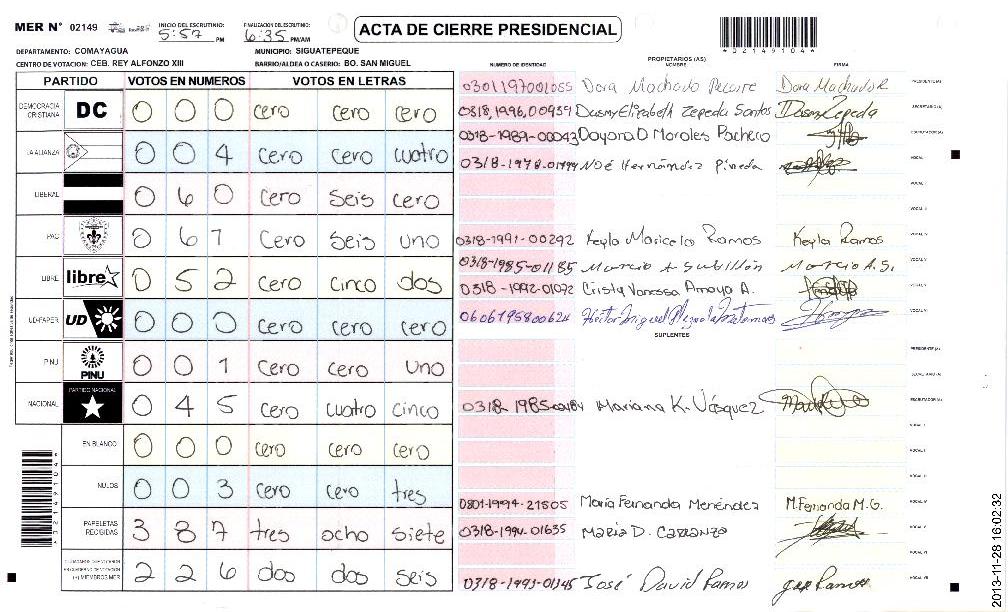 MER N° 02149 INICIO DEL ESCRUTINIO: 5:57 PM FINALIZACION DEL ESCRUTINIO: 6:35 PM/AM ACTA DE CIERRE PRESIDENCIAL
DEPARTAMENTO: COMAYAGUA MUNICIPIO: SIGUATEPEQUE
CENTRO DE VOTACION: CEB. REY ALFONZO XIII BARRIO/ALDEA O CASERIO: BO. SAN MIGUEL
PARTIDO VOTOS EN NUMEROS VOTOS EN LETRAS
DEMOCRACIA CRISTIANA DC 0 0 0 cero cero cero
LA ALIANZA 0 0 4 cero cero cuatro
LIBERAL 0 6 0 cero seis cero
PAC 0 6 1 cero seis uno
LIBRE libre 0 5 2 cero cinco dos
UD-FAPER UD 0 0 0 cero cero cero
PINU PINU 0 0 1 cero cero uno
NACIONAL PARTIDO NACIONAL 0 4 5 cero cuatro cinco
EN BLANCO 0 0 0 cero cero cero
NULOS 0 0 3 cero cero tres
PAPELETAS RECIBIDAS 3 8 7 tres ocho siete
(+) MIEMBROS MER 2 2 6 dos dos seis
PROPIETARIOS (AS)
NUMERO DE IDENTIDAD NOMBRE FIRMA
0301197001055 Dora Machado PRESIDENTE(A)
0318,1996,00939 Dusmy Elizabeth Zepeda Santos Dusmy Zepeda SECRETARIO(A)
0318-1989-00043 Dayana D Morales Pacheco ESCRUTADOR(A)
0318-1978-01494 Noé Hernández Pineda VOCAL I
VOCAL II
0318-1991-00292 Keyla Maricela Ramos Keyla Ramos
0318-1985-01185 Marcio A.S.
0318-1992-01072 Cristy Vanessa Amaya A.
0606195800624 Héctor Miguel
SUPLENTES
PRESIDENTE (A)
SECRETARIO (A)
0318-1985- Mariana K. Vásquez ESCRUTADOR (A)
0801-1994-21505 María Fernanda Menéndez M.Fernanda M.G.
0318-1994-01635 María D. Carranza
0318-1993-01345 José David Ramos José Ramos
2013-11-28 16:02:32